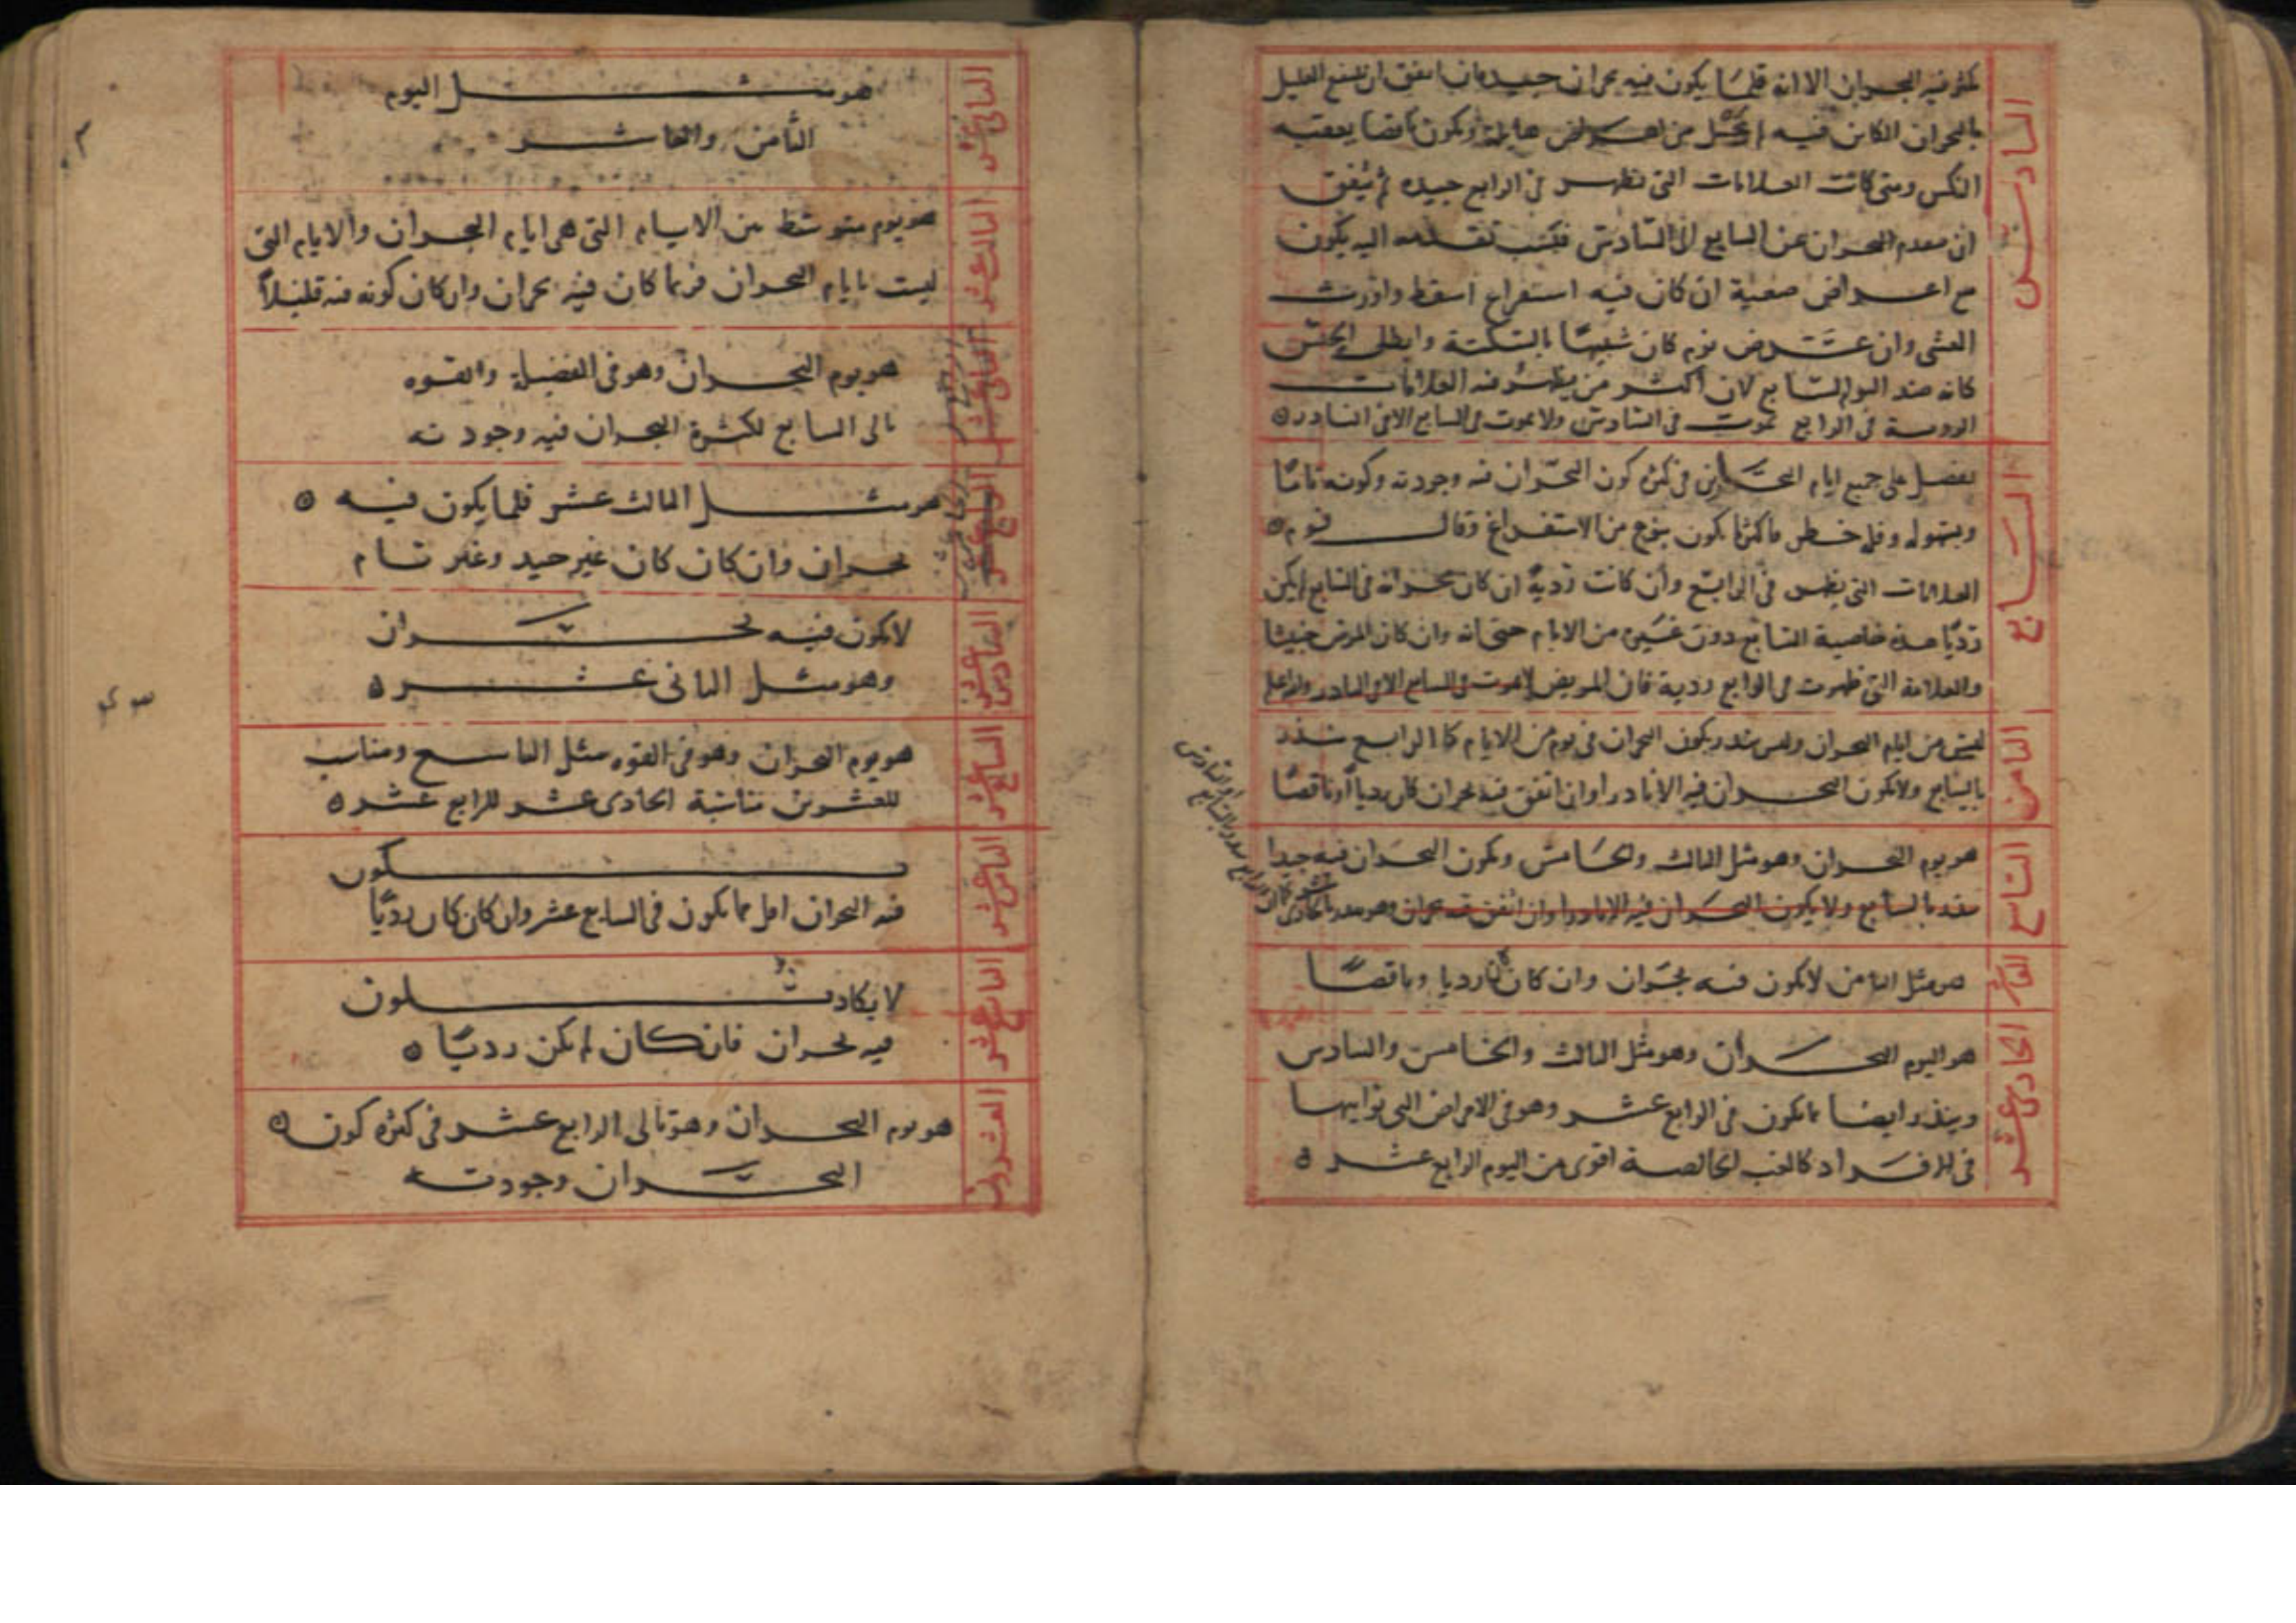 السادس
يكثر فيه البحران الا انه قلما يكون فيه بحران جيد فان اتفق ان ينتفع العليل
بالبحران الكائن فيه لم يخل من اعراض هايلة ويكون ناقصا يعقبه
النكس ومتى كانت العلامات التى تظهر فى الرابع جيده ثم يتفق
ان يتقدم البحران عن السابع الى السادس فبسبب تقدمه اليه يكون
مع اعراض صعبة ان كان فيه استفراغ اسقط واورث
الغشى وان عرض نوم كان شبيها بالسكتة وابطل الحس
كانه ضد اليوم السابع لان اكثر من يظهر فيه العلامات
الردية فى الرابع يموت فى السادس ولا يموت فى السابع الا فى النادر
السابع
يفضل على جميع ايام البحارين فى كثرة كون البحران فيه وجودته وكونه تاما
وبسهوله وقلة خطر ما كثيرا يكون بنوع من الاستفراغ وقال قوم
العلامات التى يظهر فى الرابع وان كانت ردية ان كان بحرانه فى السابع لم يكن
رديا هذه خاصية السابع دون غيره من الايام حتى انه وان كان المرض خبيثا
والعلامة التى ظهرت فى الرابع ردية فان المريض لا يموت فى السابع الا فى النادر والله اعلم
الثامن
ليس من ايام البحران وليس ينذر بكون البحران فى يوم من الايام كما الرابع ينذر
بالسابع ولا يكون البحران فيه الا نادرا وان اتفق فيه بحران كان رديا او ناقصا
التاسع
هو يوم البحران وهو مثل الثالث والخامس ويكون البحران فيه جيدا
ينذر بالسابع ولا يكون البحران فيه الا نادرا وان اتفق فيه بحران وهو ينذر بالحادى عشر كما ان
الرابع ينذر بالسابع او السادس
العاشر
هو مثل الثامن لا يكون فيه بحران وان كان كان رديا وناقصا
الحادى عشر
هو اليوم البحران وهو مثل الثالث والخامس والسادس
وينذر ايضا بما يكون فى الرابع عشر وهو فى الامراض التى نوايبها
فى الافراد كالغب الخالصة اقوى من اليوم الرابع عشر
الثانى عشر
هو مثل اليوم
الثامن والعاشر
الثالث عشر
هو يوم متوسط بين الايام التى هى ايام البحران والايام التى
ليست بايام البحران فربما كان فيه بحران وان كان كونه فيه قليلا
الرابع عشر
هو يوم البحران وهو فى الفضيلة والقوه
تالى السابع لكثرة البحران فيه وجودته
الخامس عشر
هو مثل الثالث عشر قلما يكون فيه
بحران وان كان كان غير جيد وغير تام
السادس عشر
لا يكون فيه بحران
وهو مثل الثانى عشر
السابع عشر
هو يوم البحران وهو فى القوه مثل التاسع ومناسب
للعشرين مناسبة الحادى عشر للرابع عشر
الثامن عشر
يكون
فيه البحران اقل مما يكون فى السابع عشر وان كان كان رديا
التاسع عشر
لا يكاد يكون
فيه بحران فان كان لم يكن رديا
العشرون
هو يوم البحران وهو تالى الرابع عشر فى كثره كون
البحران وجودته